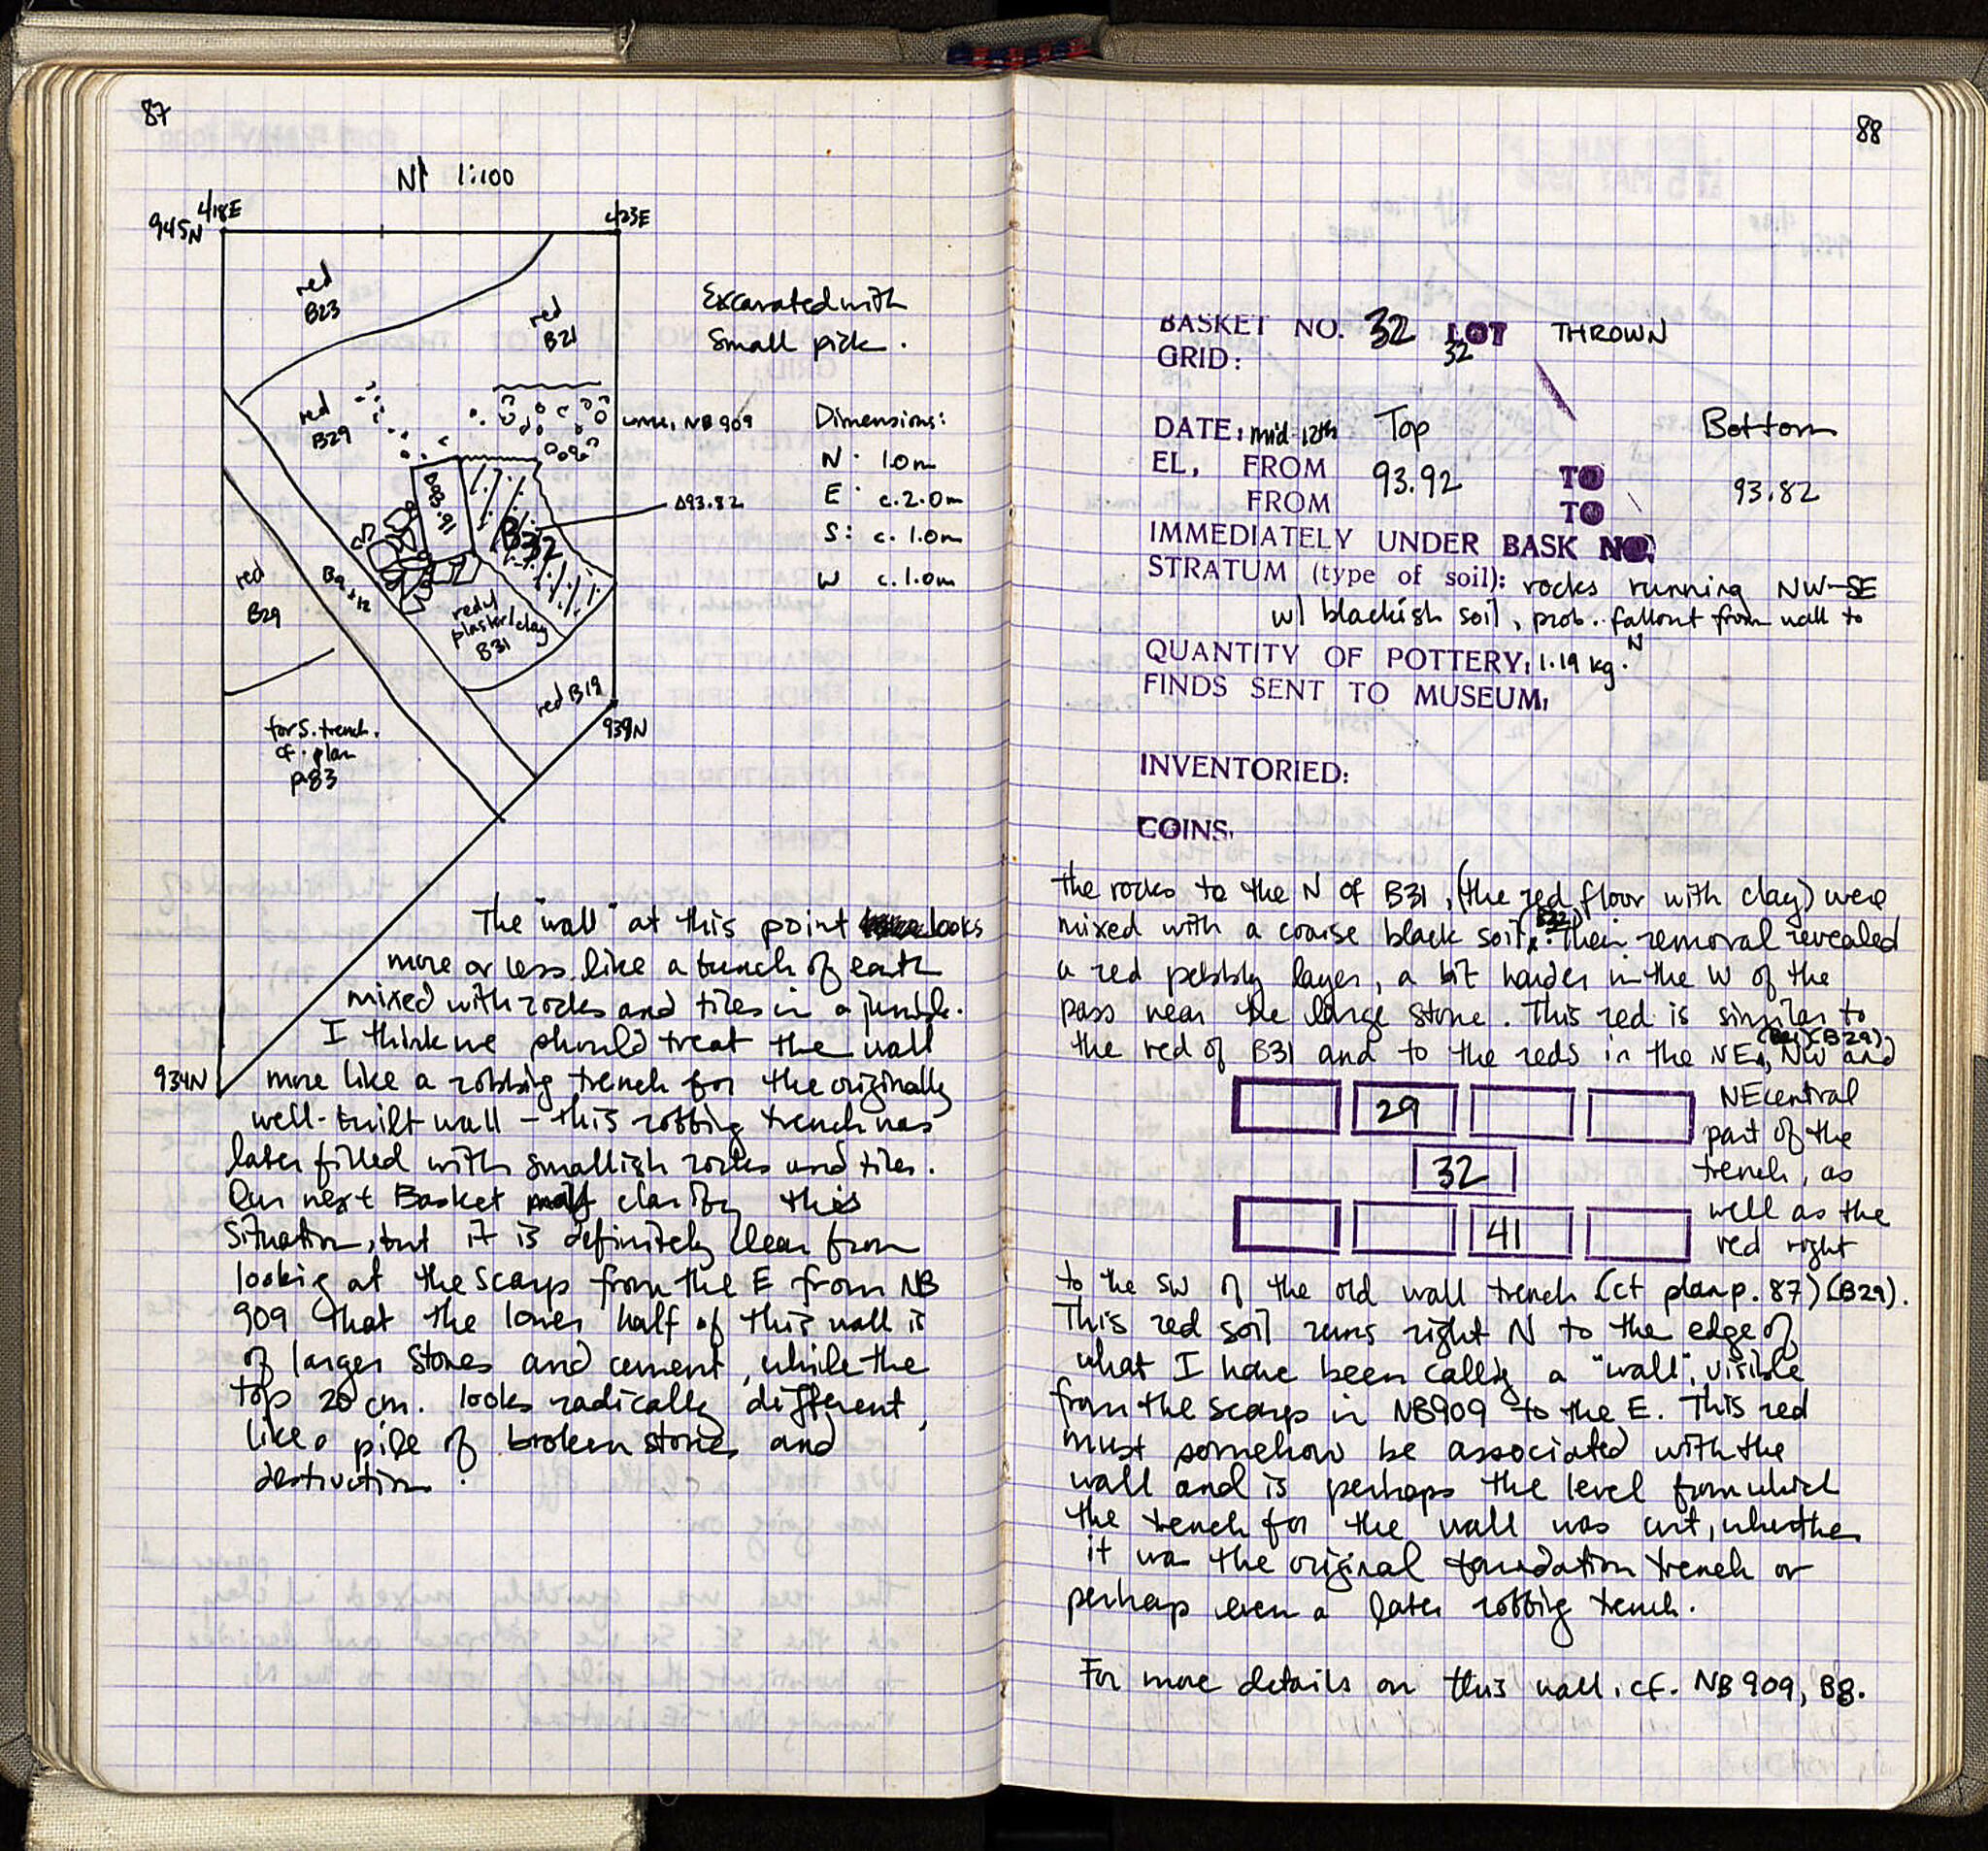 87
N 1:100
418E
423E
945N
red
B23
red
B21
Excavated with
Small pick.
red
B29
NB 909
Dimensions:
N: 1.0m
E: c. 2.0m
S: c. 1.0m
W c. 1.0m
Δ93.82
B32
red
B29
B9+12
red/
plaster/clay
B31
red B19
939N
for S. trench.
cf. plan
p. 83
934N
The "wall" at this point looks
more or less like a bunch of earth
mixed with rocks and tiles in a jumble.
I think we should treat the wall
more like a robbing trench for the originally
well-built wall – this robbing trench was
later filled with smallish rocks and tiles.
Our next Basket may clarify this
situation, but it is definitely clear from
looking at the scarp from the E from NB
909 that the lower half of this wall is
of larger stones and cement, while the
top 20 cm. looks radically different,
like a pile of broken stones and
destruction.
88
BASKET NO. 32 LOT THROWN
GRID: 32
DATE: mid 12th Top Bottom
EL, FROM 93.92 TO 93.82
FROM TO
IMMEDIATELY UNDER BASK NO.
STRATUM (type of soil): rocks running NW-SE
w/ blackish soil, prob. fallout from wall to
N
QUANTITY OF POTTERY: 1.19 kg.
FINDS SENT TO MUSEUM:
INVENTORIED:
COINS:
The rocks to the N of B31, (the red floor with clay) were
mixed with a coarse black soil. Their removal revealed
a red pebbly layer, a bit harder in the W of the
pass near the large stone. This red is similar to
the red of B31 and to the reds in the NE, NW (B29) and
29
32
41
NE central
part of the
trench, as
well as the
red right
to the SW of the old wall trench (cf plan p. 87) (B29).
This red soil runs right N to the edge of
what I have been calling a "wall", visible
from the scarp in NB909 to the E. This red
must somehow be associated with the
wall and is perhaps the level from which
the trench for the wall was cut, whether
it was the original foundation trench or
perhaps even a later robbing trench.
For more details on this wall, cf. NB 909, B8.